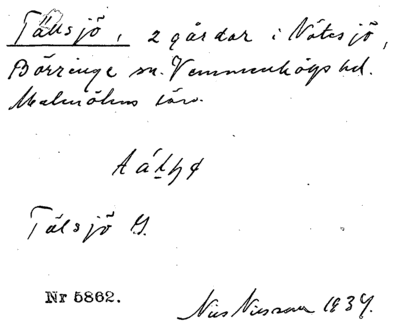 Tällsjö, 2 gårdar i Nötesjö,
Börringe sn. Vemmenhögs hd.
Malmöhus län.
Tälsjö G.
Nr 5862. Nils Nilsson 1934.